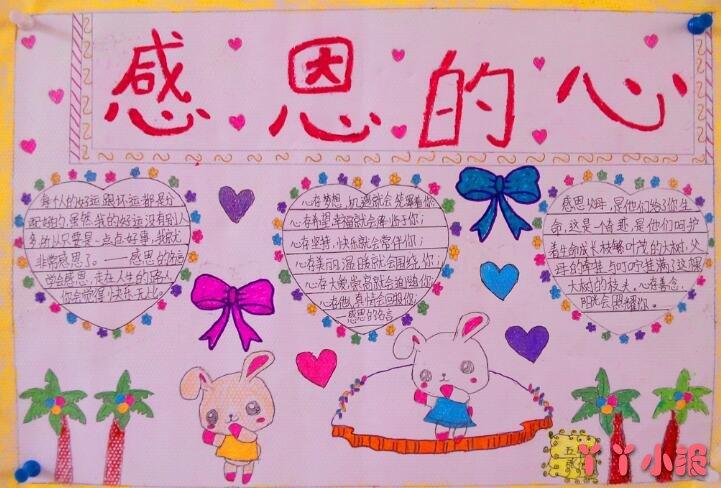 感恩的心
每个人的好运跟坏运都是分
配好的，虽然我的好运没有别人
多所以只要是一点点好事，我就
非常感恩了。——感恩的名言
学会感恩，走在人生的路上
你会觉得快乐无比。
心存梦想，机遇就会笼罩着你
心存希望，幸福就会降临于你；
心存坚持，快乐就会常伴你；
心存美丽，温暖就会围绕你；
心存大爱，崇高就会追随你
心存他，真情会回报你
——感恩的名言
感恩父母，是他们给了你生
命，这是一个奇迹，是他们呵护
着生命成长枝繁叶茂的大树，父
母的牵挂与叮咛挂满了这棵
大树的枝头，心存善念，
阳光会照耀你。
丫丫小报